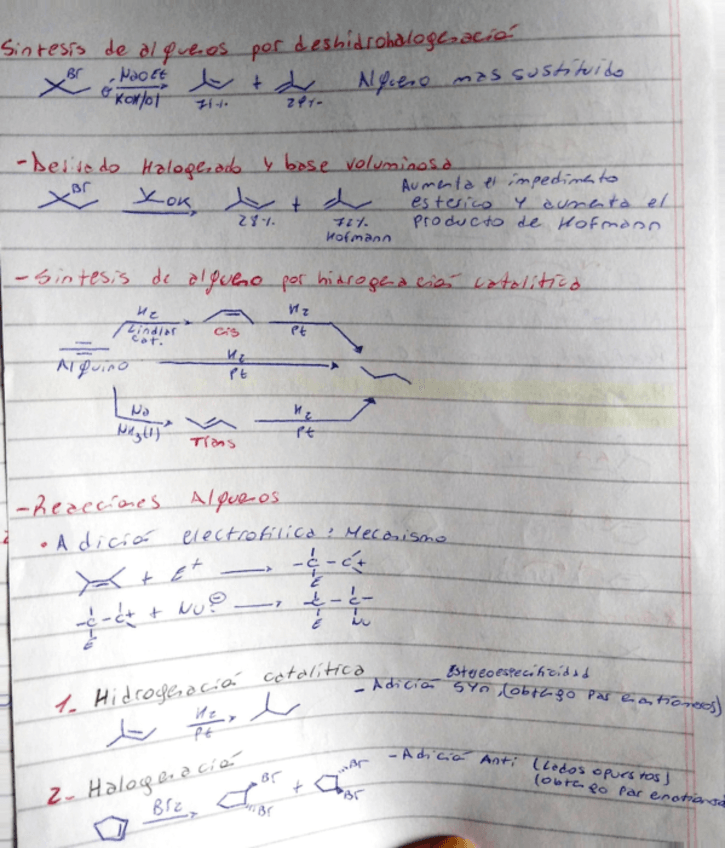 Sintesis de alquenos por deshidrohalogenación
Br
NaOEt
KOH/ol
71%
+
29%
Alqueno mas sustituido
- Derivado Halogenado y base voluminosa
Br
OK
28%
+
72%
Hofmann
Aumenta el impedimento
esterico y aumenta el
producto de Hofmann
- Sintesis de alqueno por hidrogenación catalitica
H2
Lindlar
Cat.
cis
H2
Pt
Alquino
H2
Pt
Na
NH3(l)
Trans
H2
Pt
- Reacciones Alquenos
• Adición electrofilica: Mecanismo
+ E+
-C-C+
E
-C-C+ + Nu:⊖
E
-C-C-
E Nu
1- Hidrogenación catalitica
H2
Pt
Estereoespecificidad
- Adición syn, (obtengo Par enantiomeros)
2- Halogenación
Br2
Br
Br
+
Br
Br
- Adición Anti (Lados opuestos)
(obtengo Par enantiome